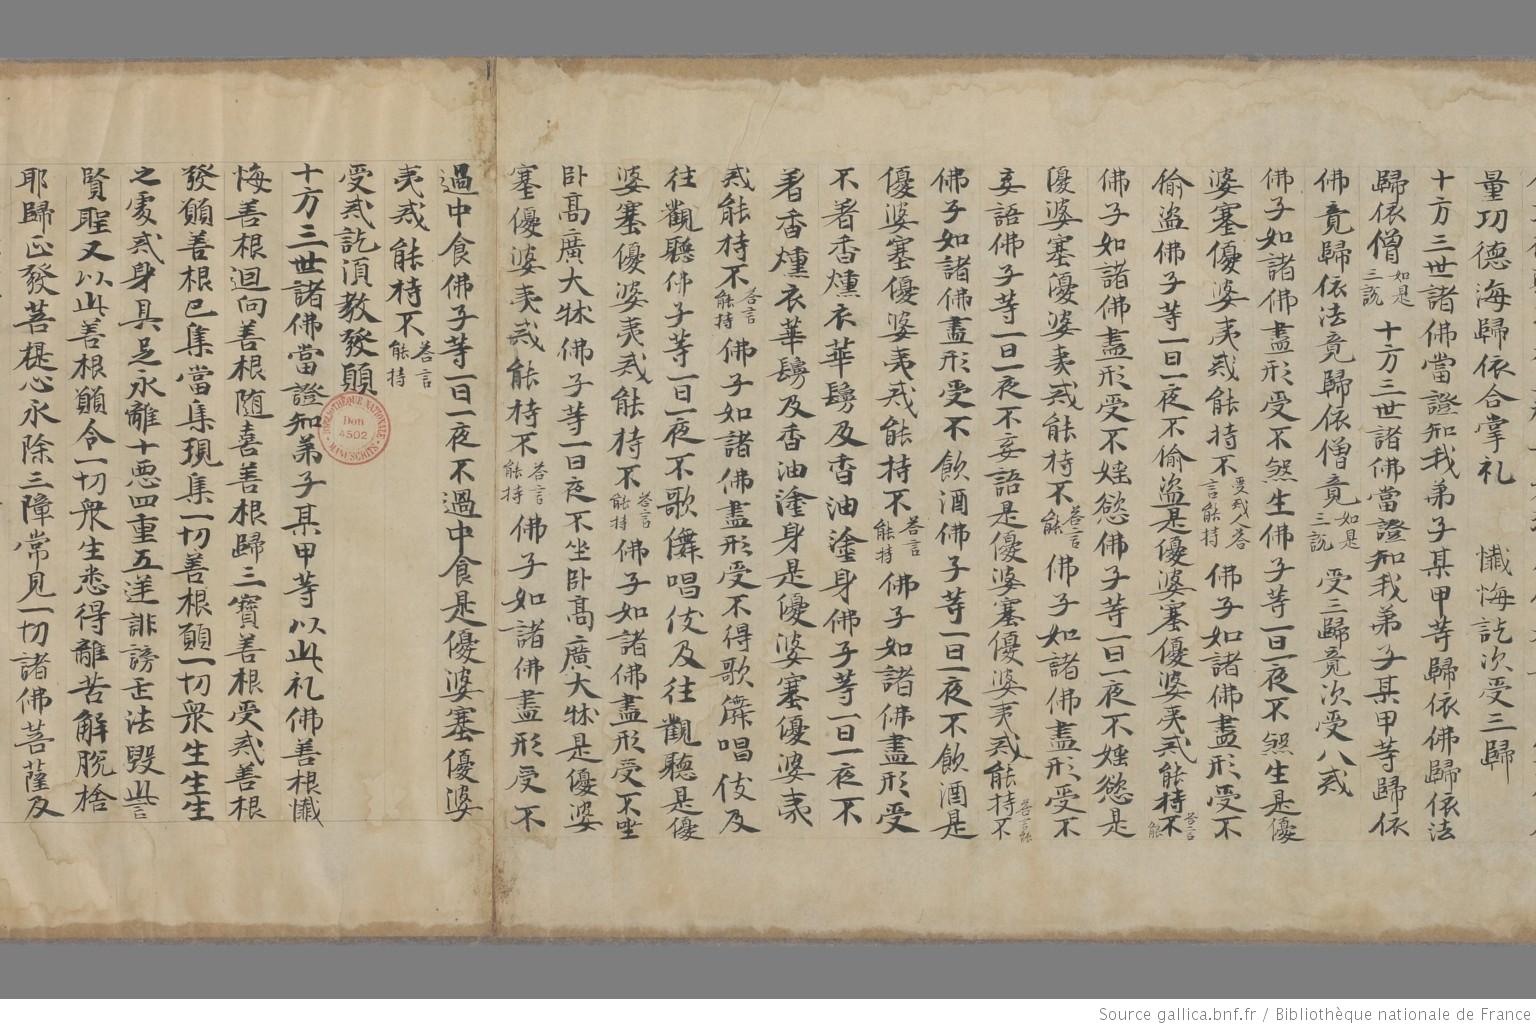 量功德海歸依合掌礼　懺悔訖次受三歸
十方三世諸佛當證知我弟子某甲等歸依佛歸依法
歸依僧如是三說　十方三世諸佛當證知我弟子某甲等歸依
佛竟歸依法竟歸依僧竟如是三說　受三歸竟次受八戒
佛子如諸佛盡形受不煞生佛子等一日一夜不煞生是優
婆塞優婆夷戒能持不受戒人答言能持佛子如諸佛盡形受不
偷盜佛子等一日一夜不偷盜是優婆塞優婆夷戒能持不答言能
佛子如諸佛盡形受不婬慾佛子等一日一夜不婬慾是
優婆塞優婆夷戒能持不答言能佛子如諸佛盡形受不
妄語佛子等一日一夜不妄語是優婆塞優婆夷戒能持不答言能
佛子如諸佛盡形受不飲酒佛子等一日一夜不飲酒是
優婆塞優婆夷戒能持不答言能持佛子如諸佛盡形受
不著香燻衣華鬘及香油塗身佛子等一日一夜不
著香燻衣華鬘及香油塗身是優婆塞優婆夷
戒能持不答言能持佛子如諸佛盡形受不得歌儛唱伎及
往觀聽佛子等一日一夜不歌儛唱伎及往觀聽是優
婆塞優婆夷戒能持不答言能持佛子如諸佛盡形受不坐
卧高廣大牀佛子等一日一夜不坐卧高廣大牀是優婆
塞優婆夷戒能持不答言能持佛子如諸佛盡形受不
過中食佛子等一日一夜不過中食是優婆塞優婆
夷戒能持不答言能持
受戒訖須教發願
十方三世諸佛當證知弟子某甲等以此礼佛善根懺
悔善根迴向善根隨喜善根歸三寶善根受戒善根
發願善根已集當集現集一切善根願一切衆生生生
之處戒身具足永離十惡四重五逆誹謗正法毀呰
賢聖又以此善根願令一切衆生悉得離苦解脫捨
耶歸正發菩提心永除三障常見一切諸佛菩薩及
BIBLIOTHÈQUE NATIONALE
Don 4502
MANUSCRITS
Source gallica.bnf.fr / Bibliothèque nationale de France